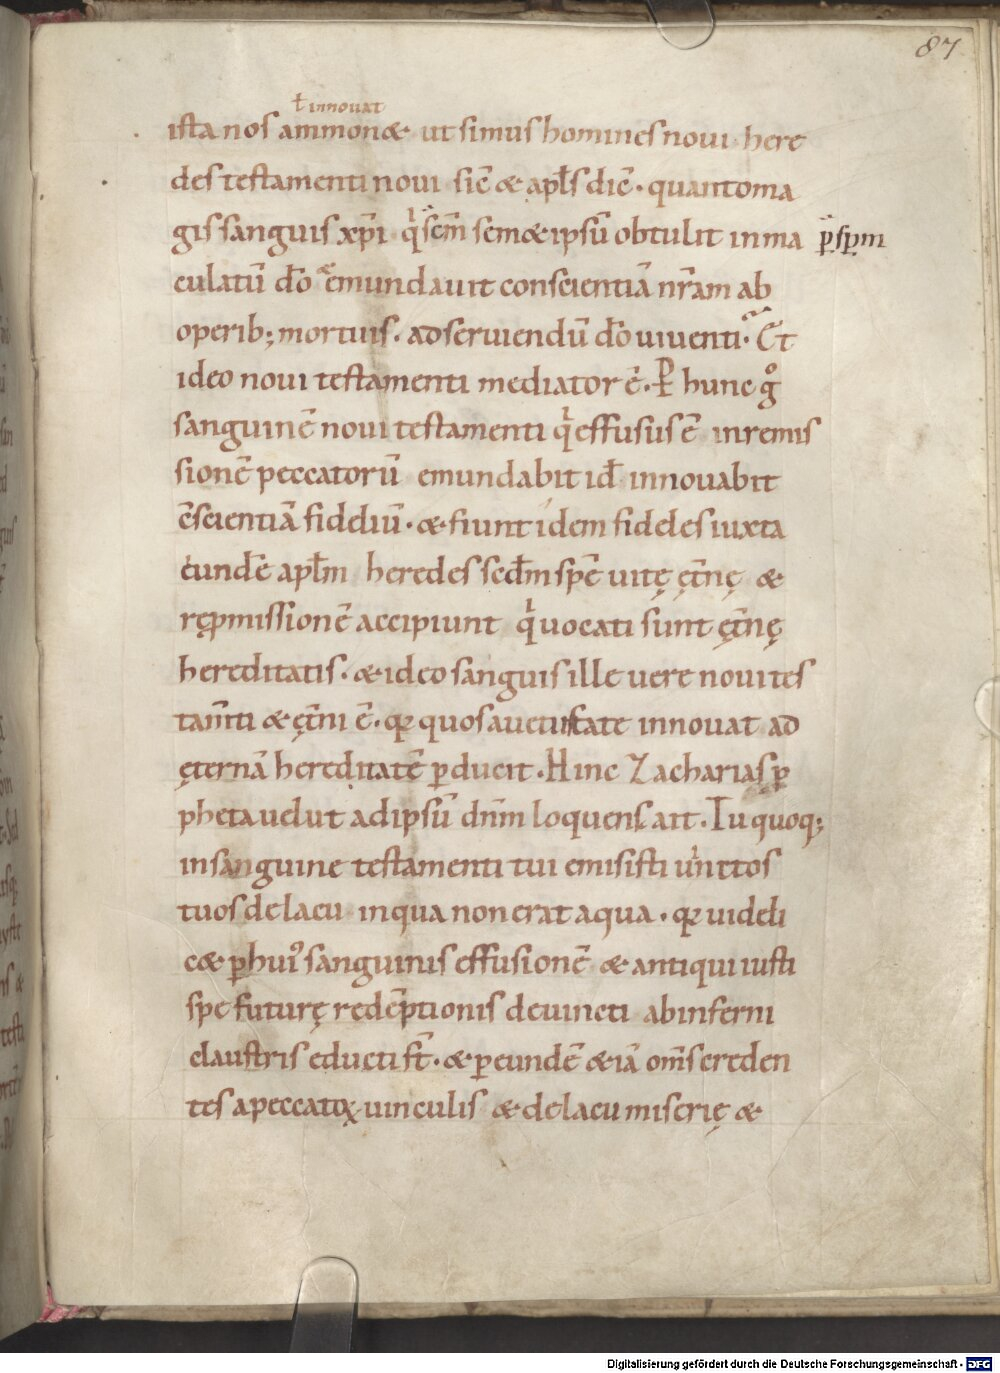 87
ł innouat
ista nos ammon& ut simus homines noui here
des testamenti noui sic̄ & apl̄s dic̄· quanto ma
gis sanguis xp̄i q̇ sem̄ sem&ipsū obtulit inma
p̄ sp̄m
culatū dō emundauit conscientiā nr̄am ab
operib; mortuis· ad seruiendū dō uiuenti· Et
ideo noui testamenti mediator ē· P hunc gͦ
sanguinē noui testamenti q̇ effusus ē inremis
sionē peccatorū emundabit id̄ innouabit
c̄scientiā fideliū· & fiunt idem fideles iuxta
eundē apl̄m heredes secd̄m spē uitę ęt̄nę &
rep̱missionē accipiunt q̇ uocati sunt ęt̄nę
hereditatis· & ideo sanguis ille uere noui tes
tam̄ti & ęt̄ni ē· qꝛ quos auetustate innouat ad
ęternā hereditatē ꝑducit· Hinc Zacharias ꝓ
pheta uelut adipsū dn̄m loquens ait· Tu quoq;
insanguine testamenti tui emisisti uin̄ctos
tuos delacu inqua non erat aqua· qꝛ uideli
c& ꝑ hui᾽ sanguinis effusionē & antiqui iusti
spe futurę redēptionis deuincti ab inferni
claustris educti st̄· & ꝑ eundē & iā om̄s creden
tes apeccatoꝝ uinculis & delacu miserię &
Digitalisierung gefördert durch die Deutsche Forschungsgemeinschaft - DFG